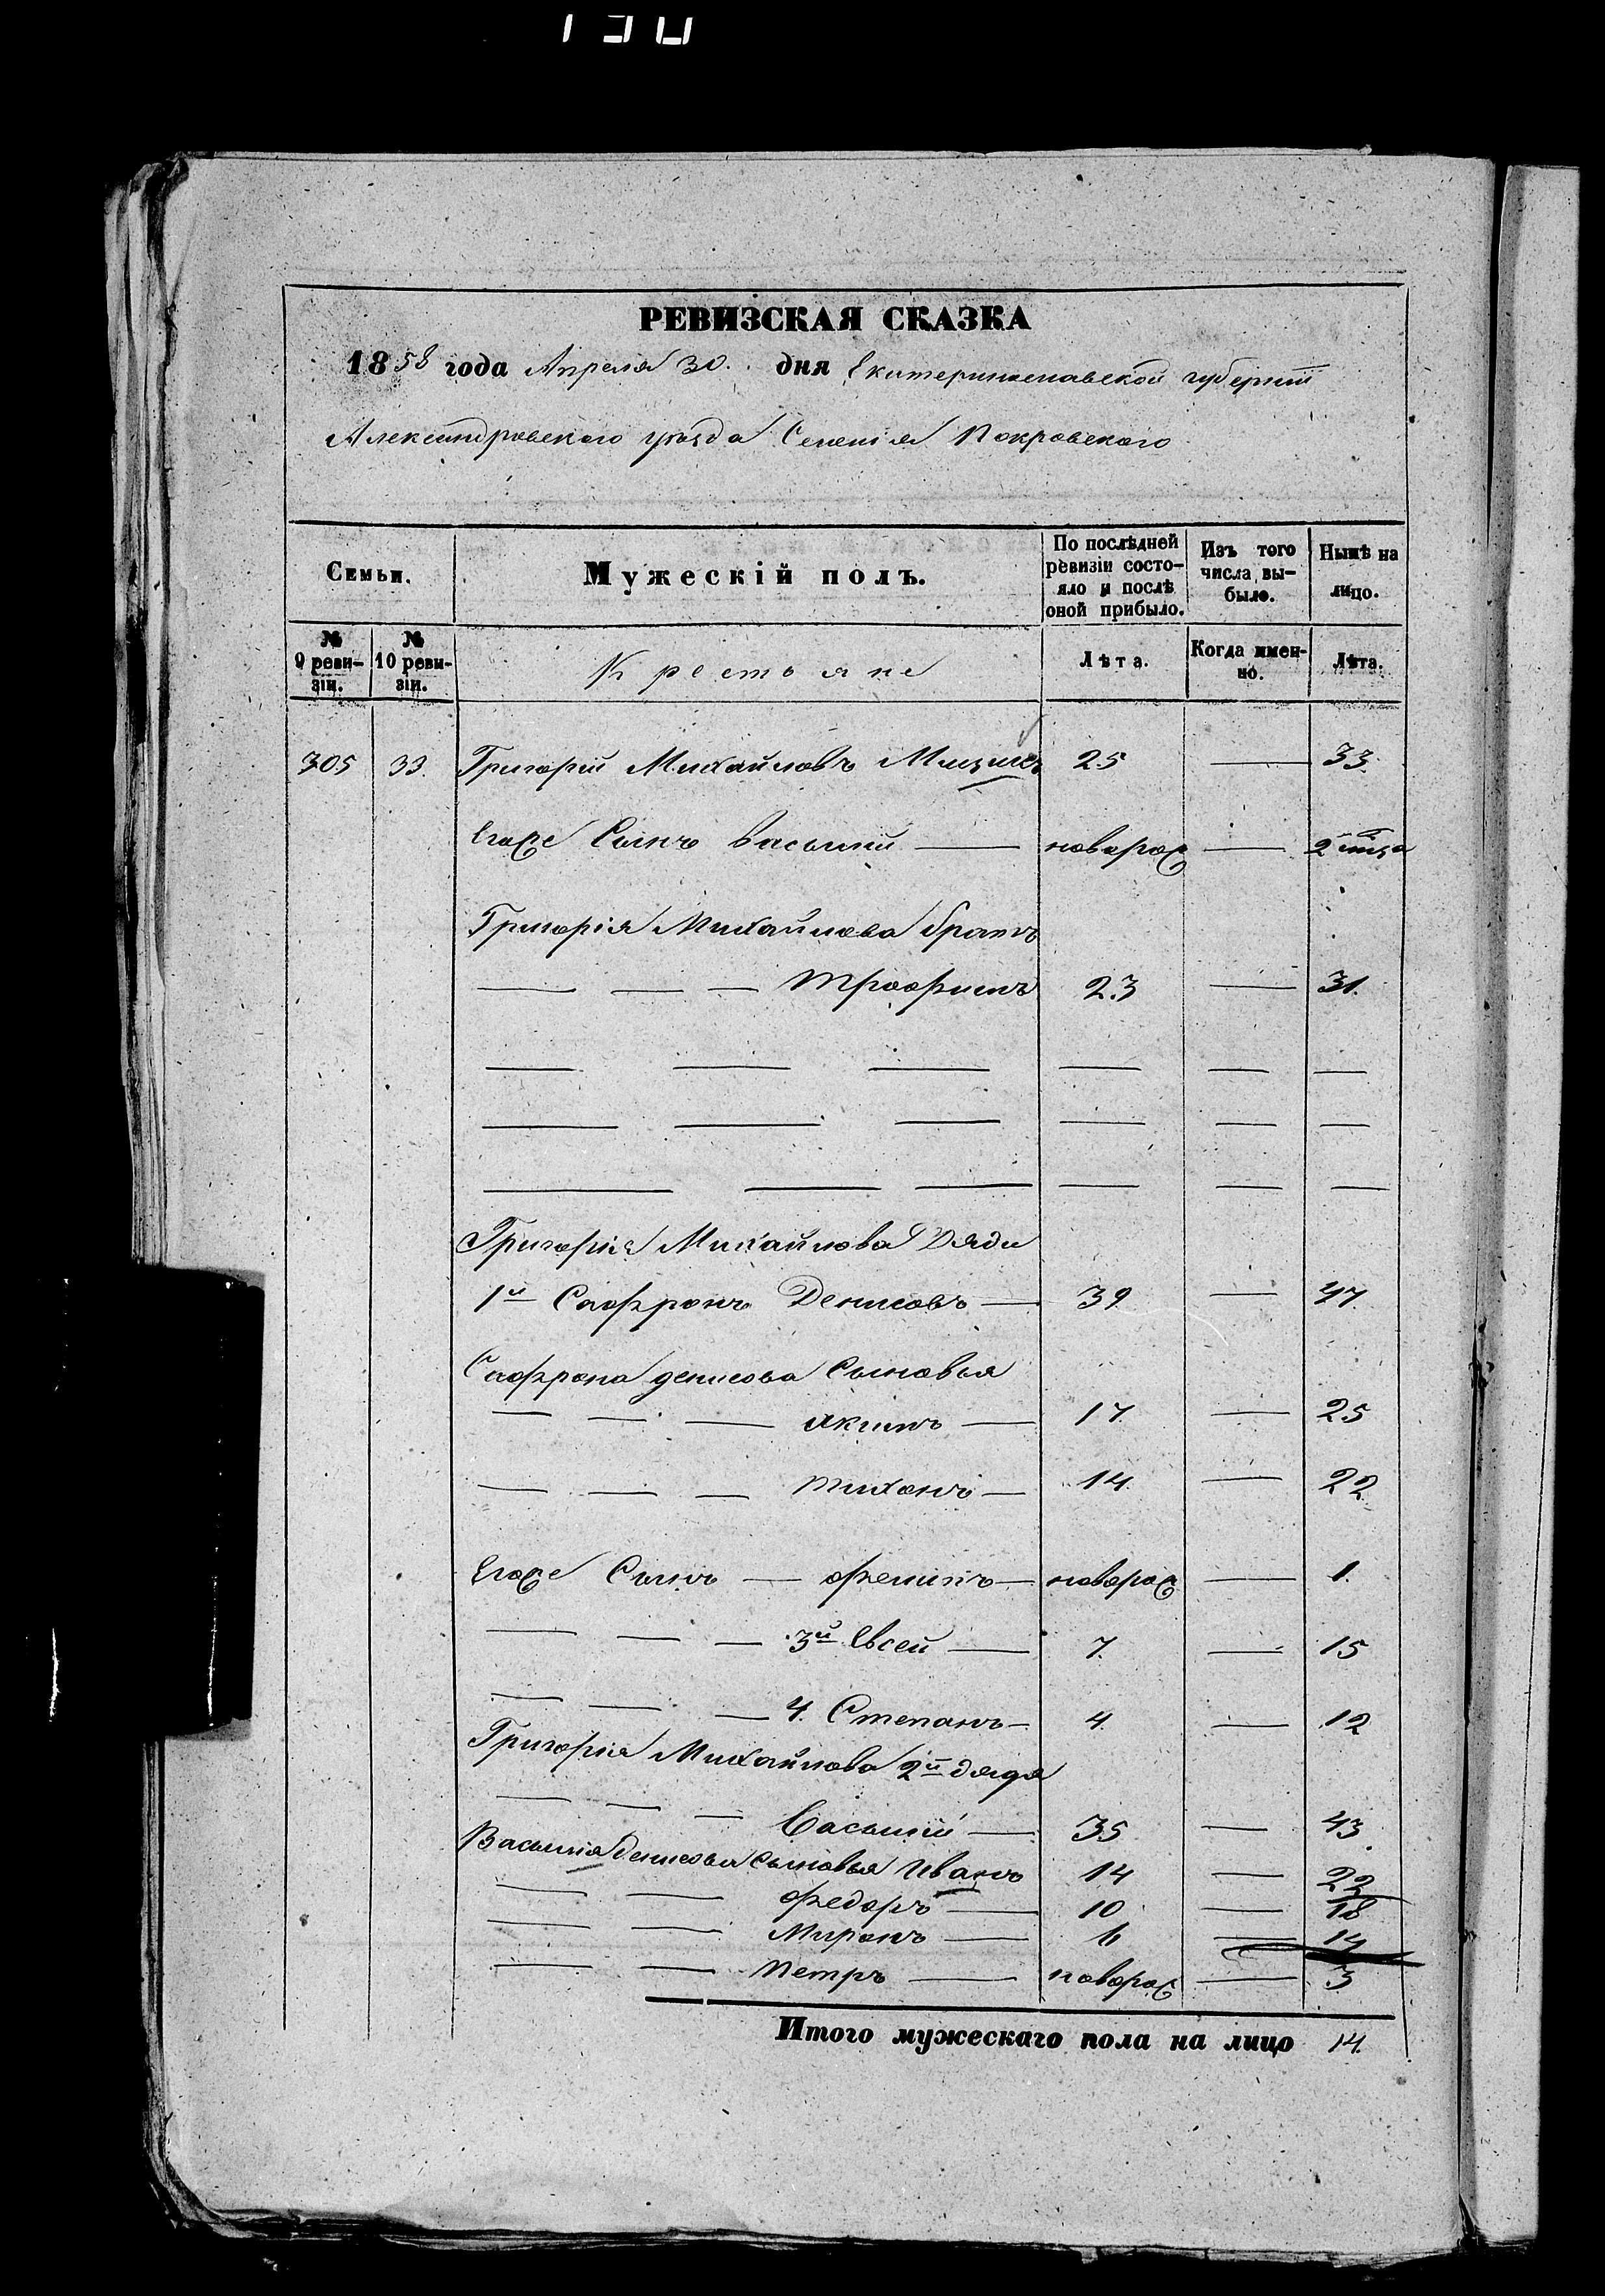 130
РЕВИЗСКАЯ СКАЗКА
1858 года Апреля 30. дня Екатеринославской губерніи
Александровского уѣзда Селенія Покровского
Семьи.
Мужескій полъ.
По послѣдней ревизіи состо-
яло и послѣ
оной прибыло.
Изъ того
числа вы-
было.
Нынѣ на
лицо.
№ 9 реви-
зіи.
№ 10 реви-
зіи.
Крестьяне
Лѣта.
Когда имен-
но.
Лѣта.
305 33. Григорій Михайловъ 25 — 33.
Егоже Сынъ Василій — новорож — 2 мца
Григорія Михайлова братъ
— — — Трофимъ 23 — 31.
— — — — — —
— — — — — —
— — — — — —
Григорія Михайлова Дяди
1й Сафронъ Денисовъ — 39 — 47.
Сафрона денисова Сыновья
— — — Якимъ — 17. — 25
— — — Тихонъ — 14. — 22
Егоже Сынъ — — новорож — 1.
— — — 3й Евсей — 7. — 15
— — — 4. Степанъ — 4. — 12
Григорія Михайлова 2й дядя
— — — Василій — 35 — 43
Василія Денисова Сыновья Иванъ 14 — 22
— — Федоръ — 10 — 18
— — Миронъ — 6 — 14
— — Петръ — новорож — 3
Итого мужескаго пола на лицо 14.